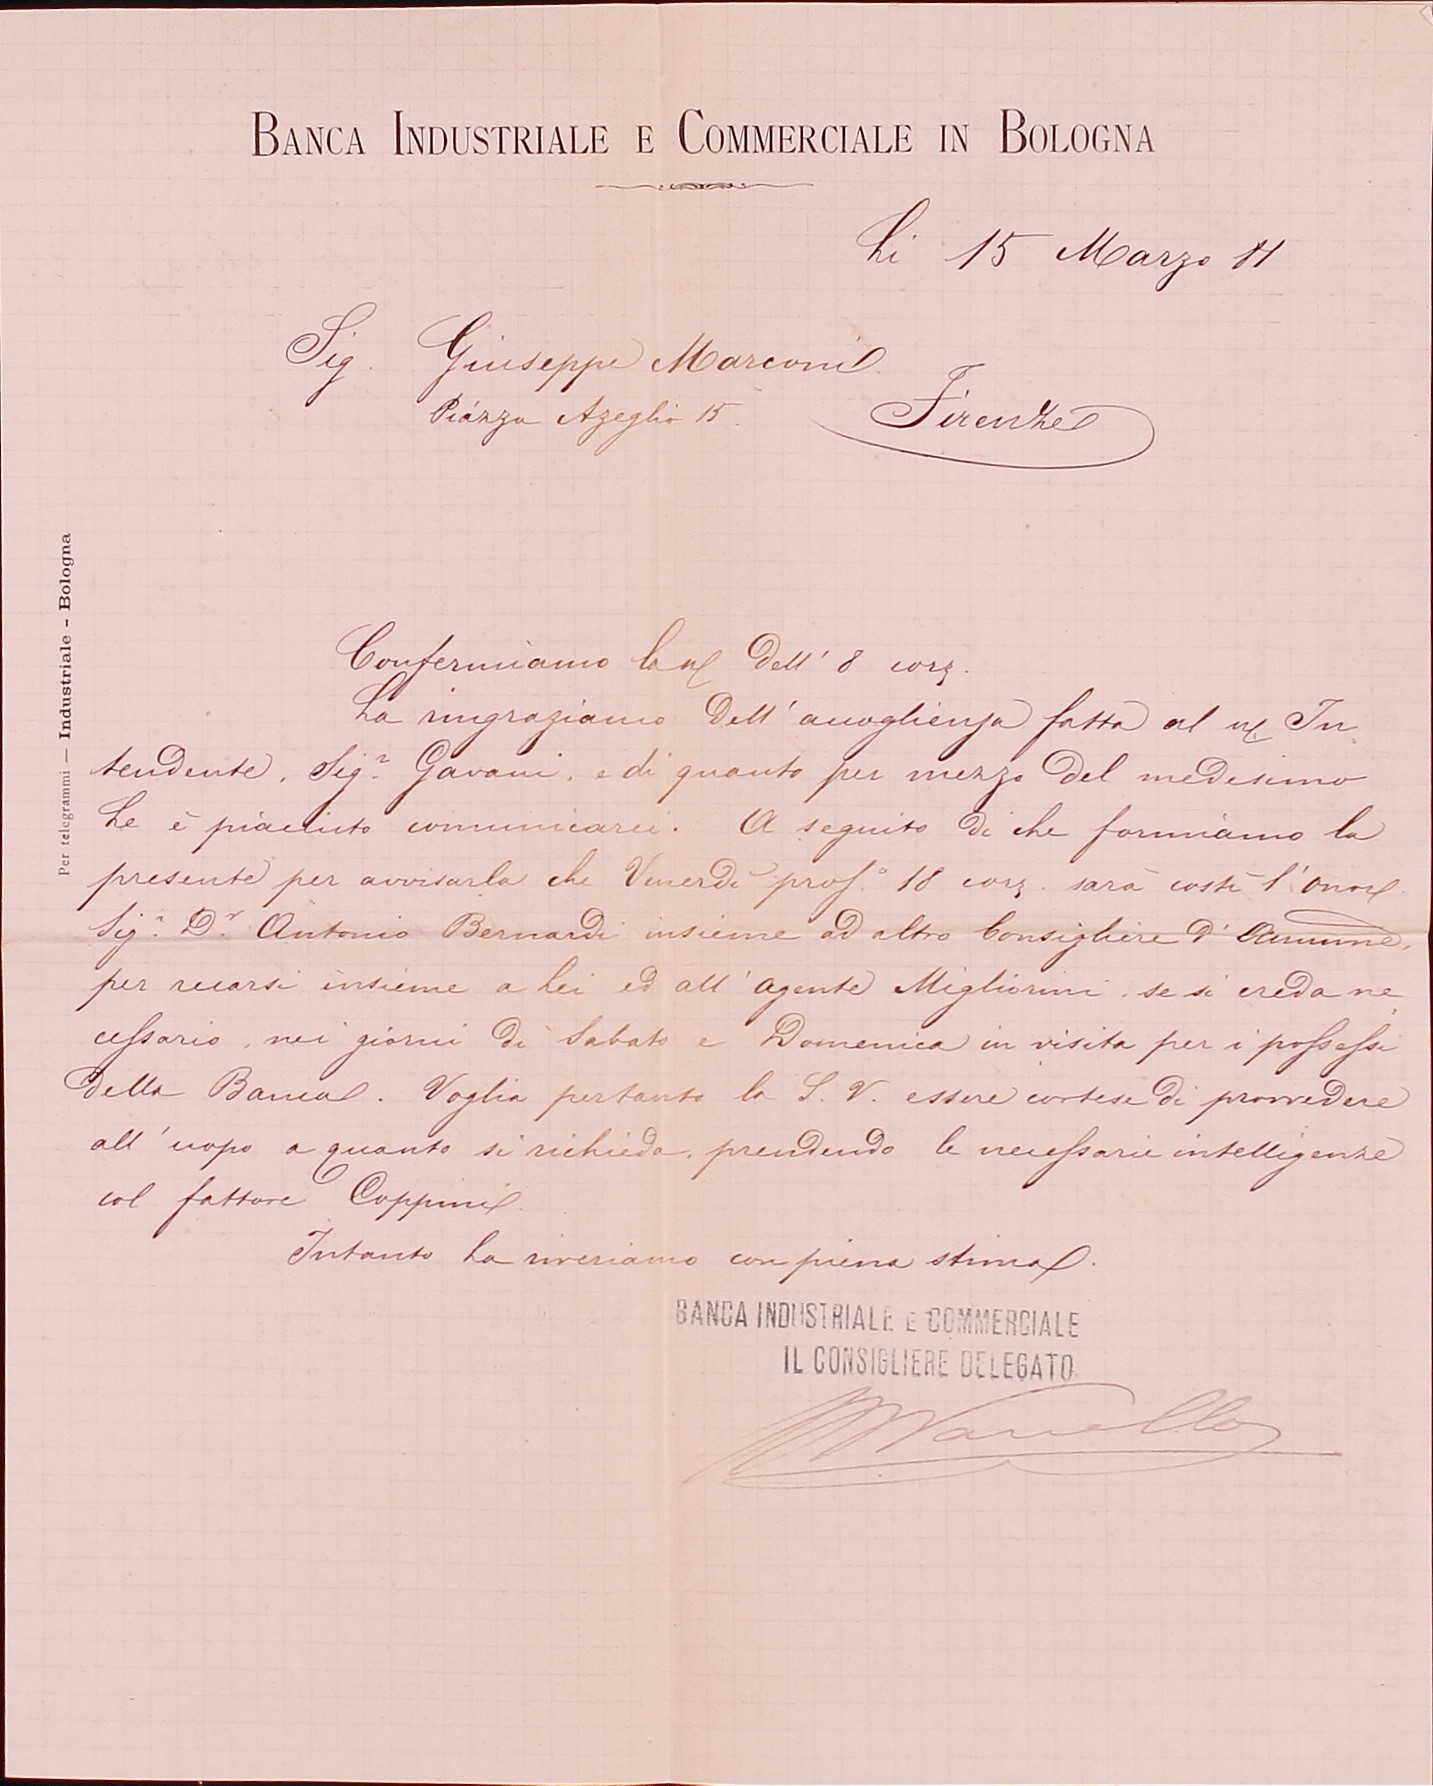 BANCA INDUSTRIALE E COMMERCIALE IN BOLOGNA
Li 15 Marzo 81
Sig. Giuseppe Marconi
Piazza Azeglio 15.
Firenze
Per telegrammi — Industriale - Bologna
Confermiamo la n/ dell' 8 corr.
La ringraziamo dell' accoglienza fatta al n/ In
tendente, Sigr. Gavani, e di quanto per mezzo del medesimo
Le è piaciuto comunicarci. A seguito di che formiamo la
presente per avvisarla che Venerdì pross.o 18 corr. sarà costì l'onor.
Sigr. Dr. Antonio Bernardi insieme ad altro Consigliere d' Ammne,
per recarsi insieme a Lei ed all' agente Migliorini, se si creda ne
cessario, nei giorni di Sabato e Domenica in visita per i possessi
della Banca. Voglia pertanto la S. V. essere cortese di provvedere
all' uopo a quanto si richieda, prendendo le necessarie intelligenze
col fattore Coppini.
Intanto La riveriamo con piena stima.
BANCA INDUSTRIALE E COMMERCIALE
IL CONSIGLIERE DELEGATO